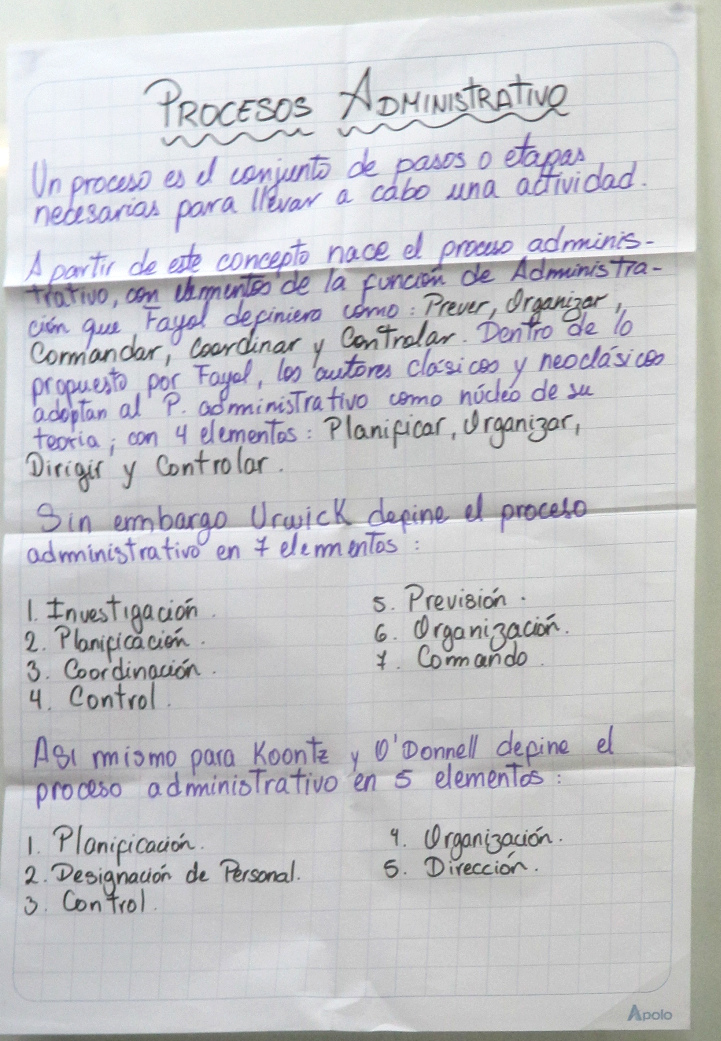 PROCESOS ADMINISTRATIVO
Un proceso es el conjunto de pasos o etapas
necesarias para llevar a cabo una actividad.
A partir de este concepto nace el proceso adminis-
trativo, con elementos de la función de Administra-
ción que Fayol definiera como: Prever, Organizar,
Comandar, Coordinar y Controlar. Dentro de lo
propuesto por Fayol, los autores clásicos y neoclásicos
adoptan al P. administrativo como núcleo de su
teoria; con 4 elementos: Planificar, Organizar,
Dirigir y Controlar.
Sin embargo Urwick define el proceso
administrativo en 7 elementos:
1. Investigación.
2. Planificación.
3. Coordinación.
4. Control.
5. Previsión.
6. Organización.
7. Comando.
Asi mismo para Koontz y O'Donnell define el
proceso administrativo en 5 elementos:
1. Planificación.
2. Designación de Personal.
3. Control.
4. Organización.
5. Dirección.
Apolo